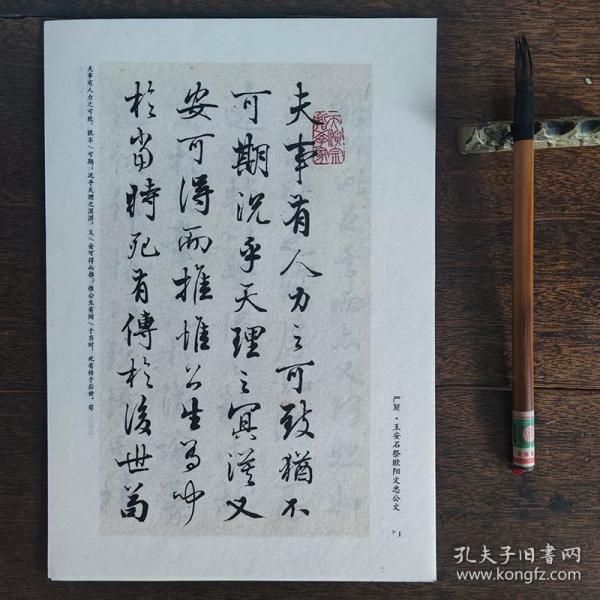 夫事有人力之可致犹不
可期況乎天理之冥漠又
安可得而推惟公生有聞
於當時死有傳於後世苟
夫事有人力之可致，犹不/可期；况乎天理之溟溟，又/安可得而推？惟公生有闻/于当时，死有传于后世，苟
严复·王安石祭欧阳文忠公文
> 1
孔夫子旧书网
www.kongfz.com